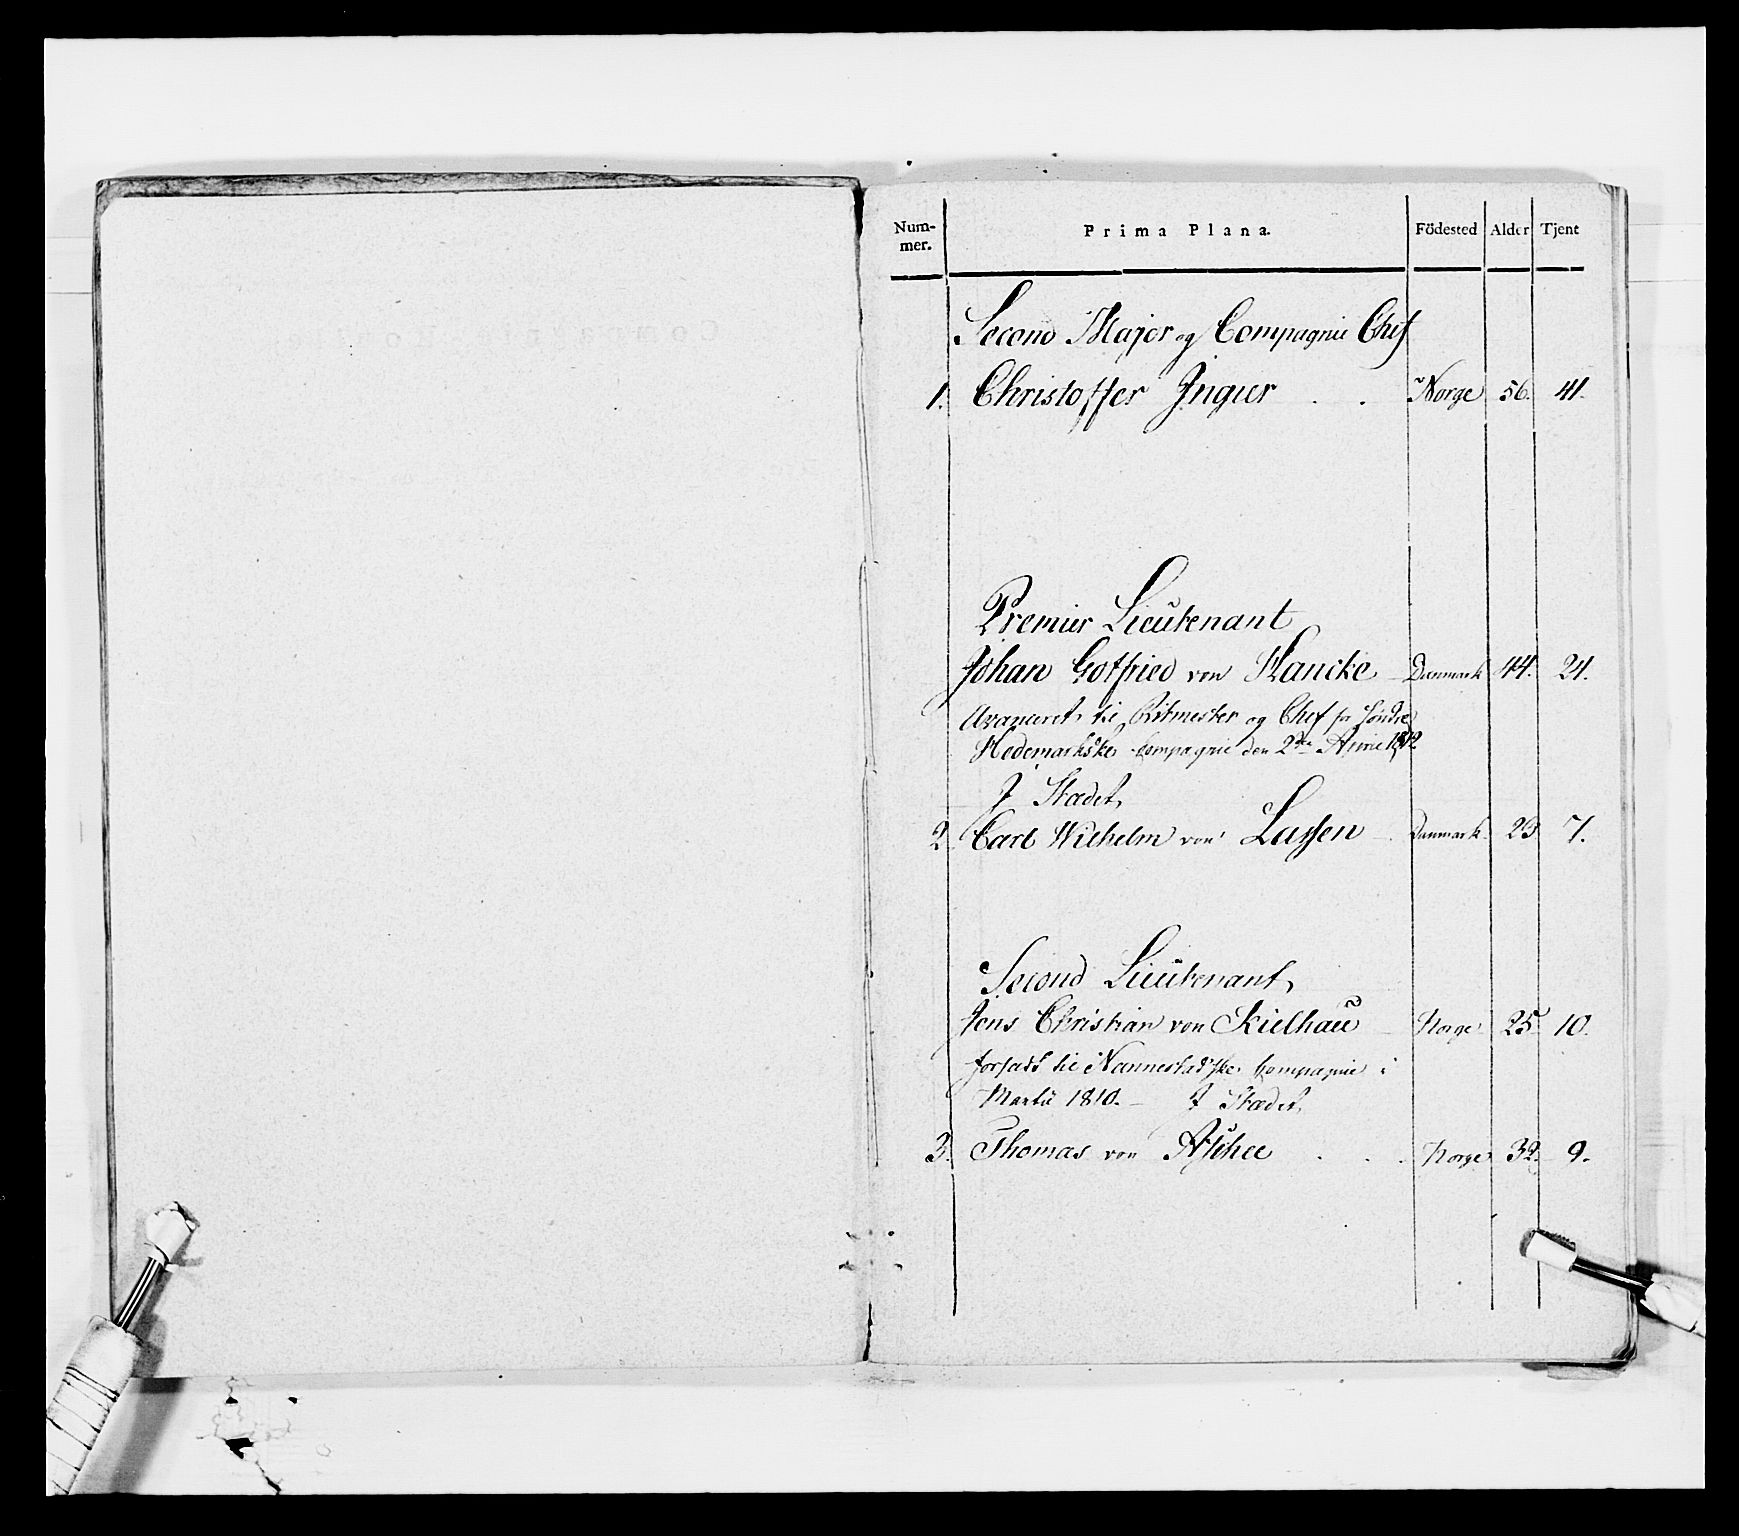 Num-
mer.
Prima Plana.
Födested Alder Tjent
Second Major og Compagnie Chef
1. Christoffer Ingier . . Norge 56. 41.
Premier Lieutenant
Johan Gotfried von Hancke Danmark 44. 24.
Avanceret til Ritmester og Chef for Söndre
Hedemarkske Compagnie den 1812
I Stædet,
2. Carl Wilhelm von Lassen Danmark 29 7.
Second Lieutenant,
Jens Christian von Kielhau Norge 25 10.
forsadt til Nannestadske Compagnie i
Martii 1810. — I Stædet,
3. Thomas von . . . Norge 32. 9.